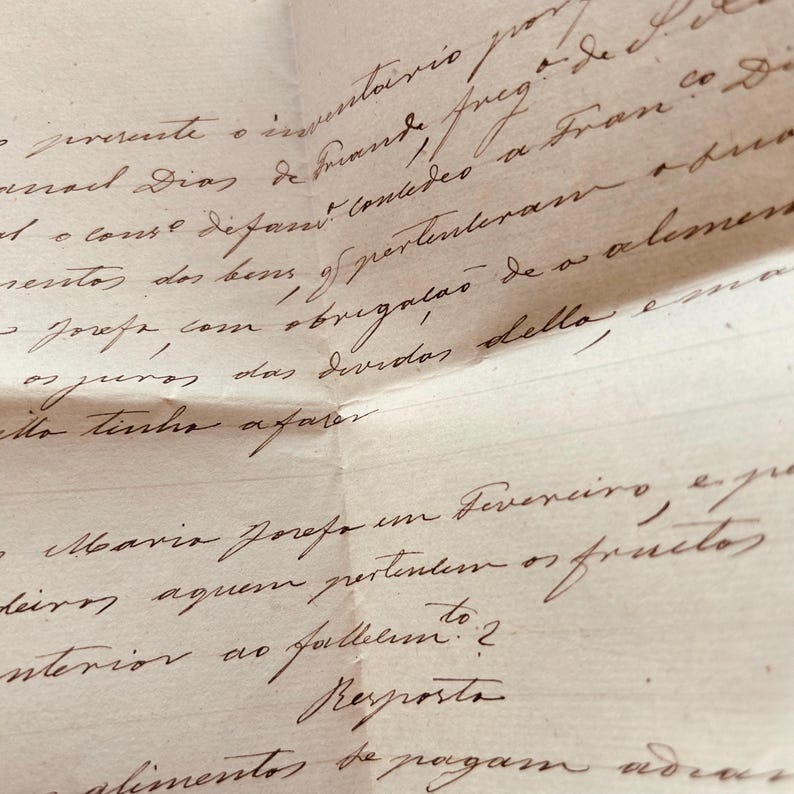 presente o inventario por
Manoel Dias de Friande, freg.ª de S.
o cons.º de fam.ª concedeo a Fran.co Di
mentos dos bens, q pertenceram a sua
Josefa, com obrigação de a alimen
os juros das dividas della, e ma
ella tinha a fazer
Maria Josefa em Fevereiro, e pe
deiros a quem pertencem os fructos
nterior ao fallecim.to?
Resposta
alimentos se pagam adian